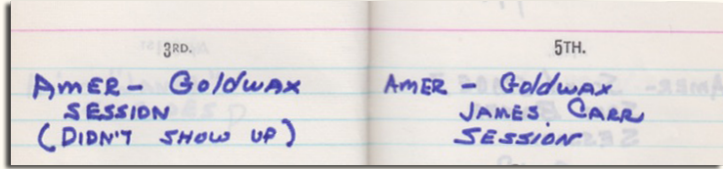 3RD.
AMER - GOldWAX
SESSION
(DIDN'T SHOW UP)
5TH.
AMER - GOldWAX
JAMES CARR
SESSION